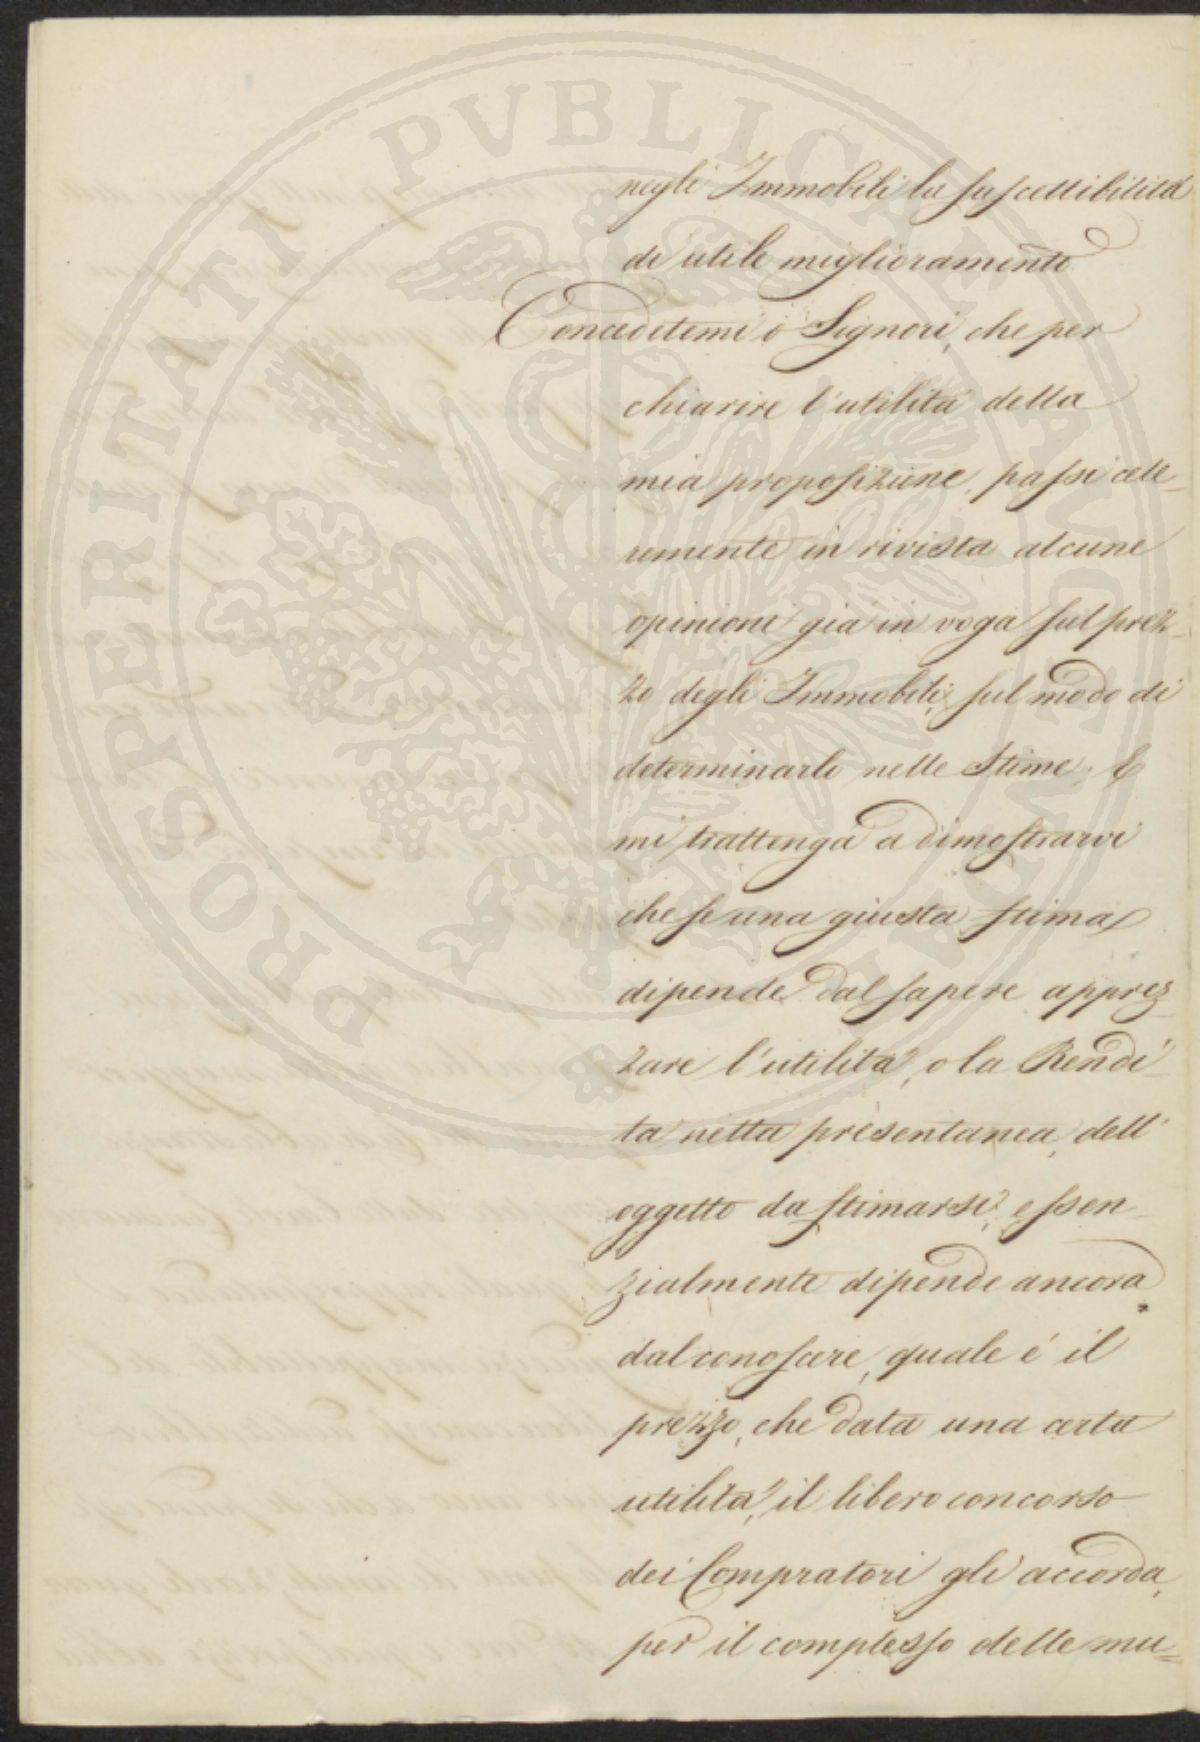 negli Immobili la suscettibilità
di utile miglioramento
Concedetemi o Signori, che per
chiarire l'utilità della
mia proposizione, passi cele-
remente in rivista alcune
opinioni già in voga sul prez-
zo degli Immobili, sul modo di
determinarle nelle Stime, E
mi trattenga a dimostrarvi
che se una giusta stima
dipende dal sapere apprez-
zare l'utilità, o la Rendi-
ta netta presentanea, dell'
oggetto da stimarsi, essen-
zialmente dipende ancora
dal conoscere, quale é il
prezzo, che data una certa
utilità, il libero concorso
dei Compratori gli accorda,
per il complesso delle mu=
PROSPERITATI PVBLICAE AVGENDAE